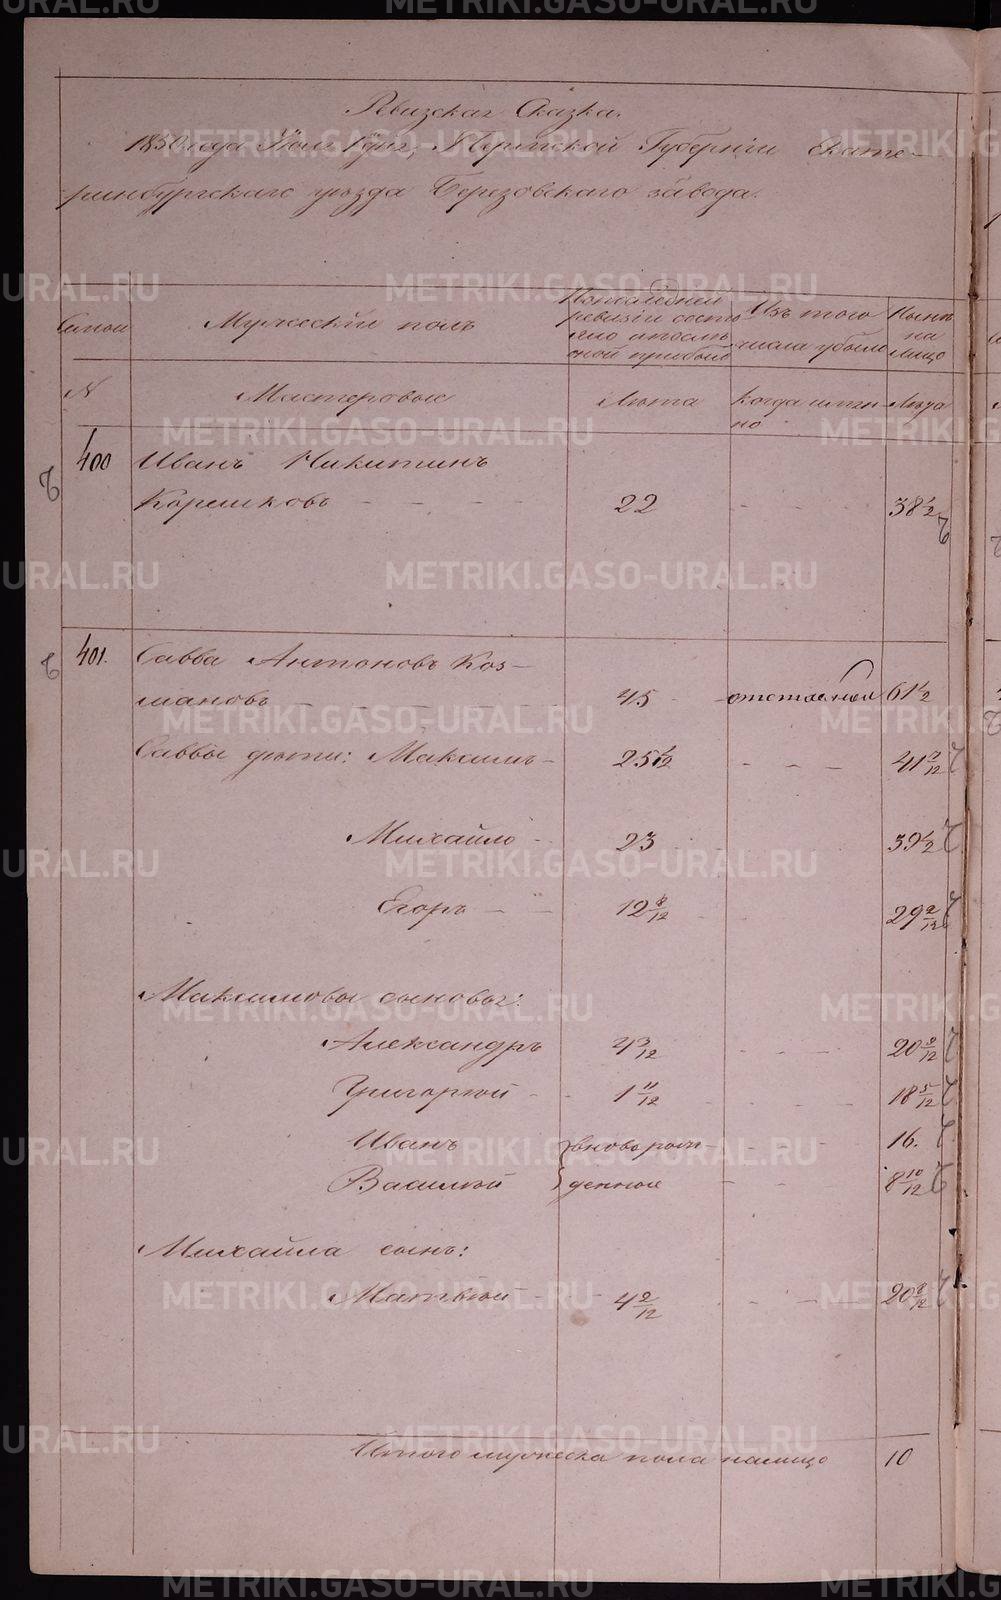 Ревизская Сказка.
1850 года Мая дня, Пермской Губернiи Екате-
ринбургскаго уѣзда Березовскаго завода.
Семьи
Мужескiй полъ
По последней
ревизiи состо
яло и посля
оной прибыло
Изъ того
числа убыло
Нынѣ
на
лицо
N
Мастеровые
Лѣта
Когда имян
но
Лѣта
400
Иванъ Никитинъ
22
38 1/2
401.
Савва Антоновъ Коз-
мановъ
45
отставной
61 1/2
Саввы дѣти: Максимъ
25 1/12
41 7/12
Михайло
23
39 1/2
Егоръ
12 8/12
29 2/12
Максимовы сыновья:
Александръ
20 8/12
Григорiй
1 11/12
18 5/12
Иванъ
вновь рож
16.
Василiй
денные
8 10/12
Михайла сынъ:
Матвѣй
4 2/12
20 8/12
Итого мужеска пола налицо
10
METRIKI.GASO-URAL.RU